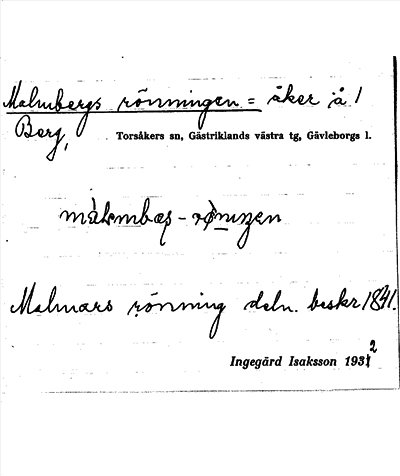 Malmbergs rönningen = åker å 1
Berg,
Torsåkers sn, Gästriklands västra tg, Gävleborgs l.
Malmars rönning deln. beskr. 1841.
Ingegärd Isaksson 1932